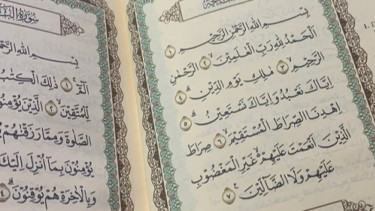 بِسْمِ اللَّهِ الرَّحْمَٰنِ الرَّحِيمِ ١
الْحَمْدُ لِلَّهِ رَبِّ الْعَٰلَمِينَ ٢ الرَّحْمَٰنِ
الرَّحِيمِ ٣ مَٰلِكِ يَوْمِ الدِّينِ ٤
إِيَّاكَ نَعْبُدُ وَإِيَّاكَ نَسْتَعِينُ ٥
اهْدِنَا الصِّرَٰطَ الْمُسْتَقِيمَ ٦ صِرَٰطَ
الَّذِينَ أَنْعَمْتَ عَلَيْهِمْ غَيْرِ الْمَغْضُوبِ
عَلَيْهِمْ وَلَا الضَّالِّينَ ٧
سُورَةُ
بِسْمِ اللَّهِ الرَّحْمَٰنِ
الٓمٓ ١ ذَٰلِكَ الْكِتَٰبُ
لِّلْمُتَّقِينَ ٢ الَّذِينَ يُؤْمِنُونَ
الصَّلَوٰةَ وَمِمَّا رَزَقْنَٰهُمْ
يُؤْمِنُونَ بِمَا أُنزِلَ إِلَيْكَ
وَبِالْءَاخِرَةِ هُمْ يُوقِنُونَ ٤